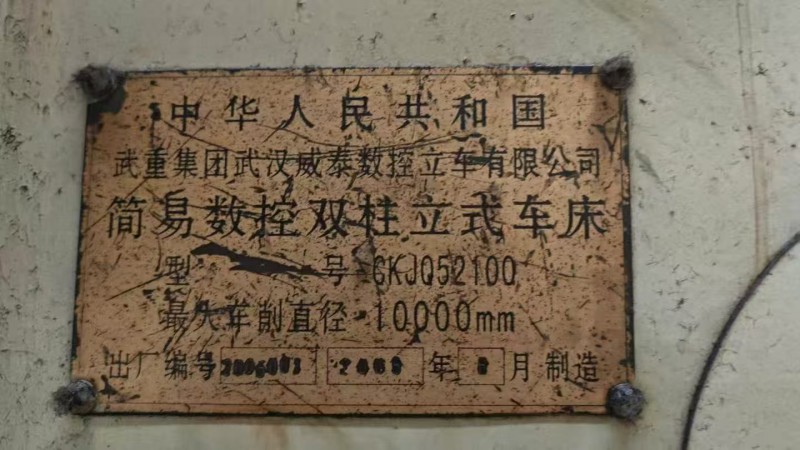 中华人民共和国
武重集团武汉威泰数控立车有限公司
简易数控双柱立式车床
型号 CKJQ52100
最大车削直径 10000mm
出厂编号 年 月 制造